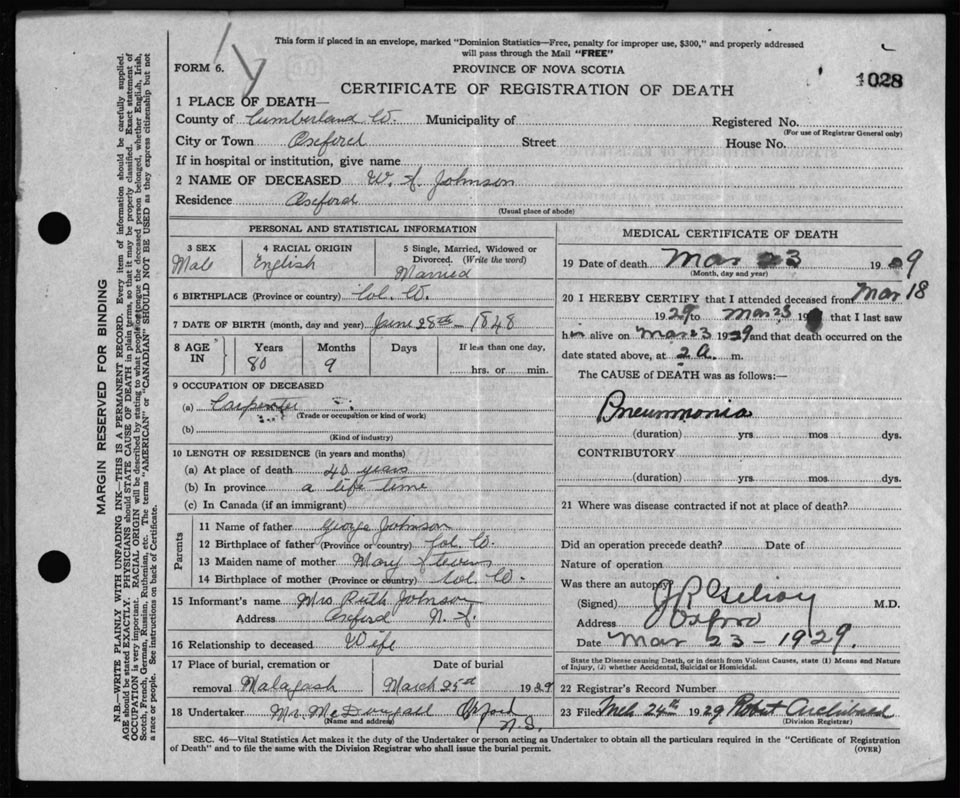 This form if placed in an envelope, marked "Dominion Statistics—Free, penalty for improper use, $300," and properly addressed
will pass through the Mail "FREE"
FORM 6.
PROVINCE OF NOVA SCOTIA
1028
CERTIFICATE OF REGISTRATION OF DEATH
1 PLACE OF DEATH—
County of Cumberland Co. Municipality of Registered No.
(For use of Registrar General only)
City or Town Oxford Street House No.
If in hospital or institution, give name
2 NAME OF DECEASED W. A. Johnson
Residence Oxford
(Usual place of abode)
PERSONAL AND STATISTICAL INFORMATION
3 SEX 4 RACIAL ORIGIN 5 Single, Married, Widowed or
Divorced. (Write the word)
Male English Married
6 BIRTHPLACE (Province or country) Col. Co.
7 DATE OF BIRTH (month, day and year) June 28th - 1848
8 AGE IN Years Months Days If less than one day,
80 9 hrs. or min.
9 OCCUPATION OF DECEASED
(a) Carpenter
(Trade or occupation or kind of work)
(b)
(Kind of industry)
10 LENGTH OF RESIDENCE (in years and months)
(a) At place of death 40 years
(b) In province a life time
(c) In Canada (if an immigrant)
Parents
11 Name of father George Johnson
12 Birthplace of father (Province or country) Col. Co.
13 Maiden name of mother Mary Stevens
14 Birthplace of mother (Province or country) Col Co.
15 Informant's name Mrs Ruth Johnson
Address Oxford N.S.
16 Relationship to deceased Wife
17 Place of burial, cremation or Date of burial
removal Malagash March 25th 1929
18 Undertaker Mr. McDougall Oxford
N.S.
(Name and address)
MEDICAL CERTIFICATE OF DEATH
19 Date of death Mar 23 1929
(Month, day and year)
20 I HEREBY CERTIFY that I attended deceased from Mar 18
1929 to Mar 23 19 that I last saw
him alive on Mar 23 1929 and that death occurred on the
date stated above, at 2 a. m.
The CAUSE of DEATH was as follows:—
Pneumonia
(duration) yrs mos dys.
CONTRIBUTORY
(duration) yrs. mos. dys.
21 Where was disease contracted if not at place of death?
Did an operation precede death? Date of
Nature of operation
Was there an autopsy
(Signed) J R Gilroy M.D.
Address Oxford
Date Mar 23 - 1929.
State the Disease causing Death, or in death from Violent Causes, state (1) Means and Nature
of Injury, (2) whether Accidental, Suicidal or Homicidal.
22 Registrar's Record Number
23 Filed Mch 24th 1929 Robert Archibald
(Division Registrar)
SEC. 46—Vital Statistics Act makes it the duty of the Undertaker or person acting as Undertaker to obtain all the particulars required in the "Certificate of Registration
of Death" and to file the same with the Division Registrar who shall issue the burial permit.
(OVER)
MARGIN RESERVED FOR BINDING
N.B.—WRITE PLAINLY WITH UNFADING INK—THIS IS A PERMANENT RECORD. Every item of information should be carefully supplied.
AGE should be stated EXACTLY. PHYSICIANS should STATE CAUSE OF DEATH in plain terms, so that it may be properly classified. Exact statement of
OCCUPATION is very important. RACIAL ORIGIN will be described by stating to what people or tongue the deceased person belonged, whether English, Irish,
Scotch, French, German, Russian, Ruthenian, etc. The terms "AMERICAN" or "CANADIAN" SHOULD NOT BE USED as they express citizenship but not
a race or people. See instructions on back of Certificate.